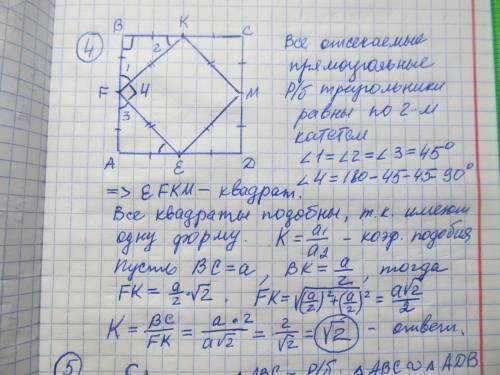 4
B K C
2
1
F 4 M
3
A E D
Все отсекаемые
прямоугольные
Р/б треугольники
равны по 2-м
катетам
∠1=∠2=∠3=45°
∠4=180-45-45=90°
=> EFKM – квадрат.
Все квадраты подобны, т.к. имеют
одну форму. K = a₁/a₂ – коэф. подобия
Пусть BC=a, BK=a/2, тогда
FK = a/2·√2. FK=√((a/2)²+(a/2)²)=a√2/2
K = BC/FK = a·2/a√2 = 2/√2 = √2 – ответ.
5